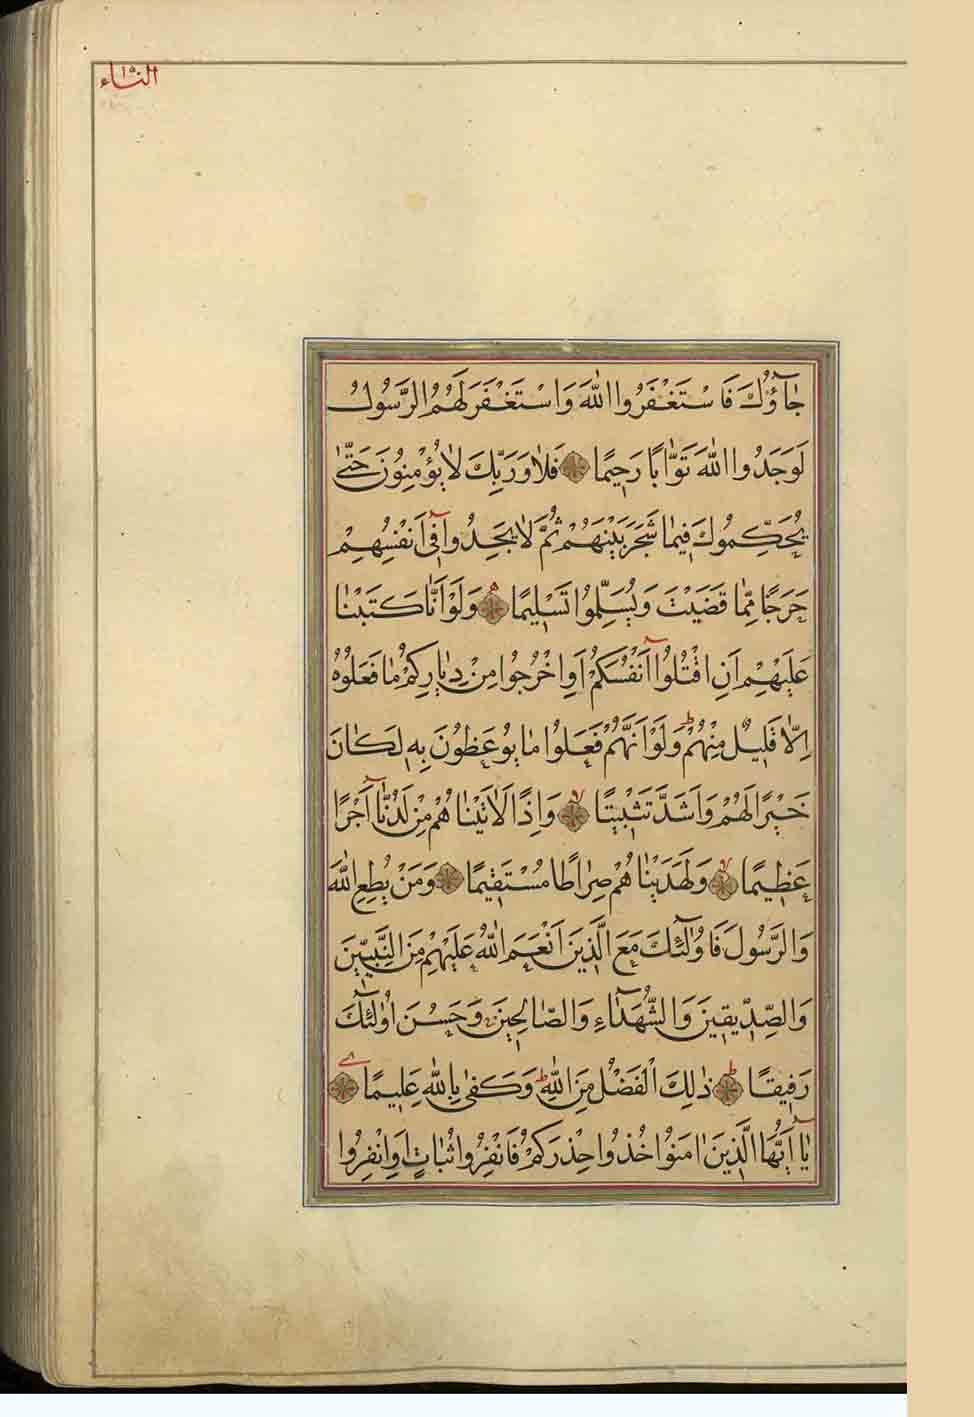 النساء
جَاؤُكَ فَاسْتَغْفَرُوا اللّٰهَ وَاسْتَغْفَرَ لَهُمُ الرَّسُولُ
لَوَجَدُوا اللّٰهَ تَوَّابًا رَحِيمًا فَلَا وَرَبِّكَ لَا يُؤْمِنُونَ حَتّٰى
يُحَكِّمُوكَ فِيمَا شَجَرَ بَيْنَهُمْ ثُمَّ لَا يَجِدُوا فِى اَنْفُسِهِمْ
حَرَجًا مِمَّا قَضَيْتَ وَيُسَلِّمُوا تَسْلِيمًا وَلَوْ اَنَّا كَتَبْنَا
عَلَيْهِمْ اَنِ اقْتُلُوا اَنْفُسَكُمْ اَوِ اخْرُجُوا مِنْ دِيَارِكُمْ مَا فَعَلُوهُ
اِلَّا قَلِيلٌ مِنْهُمْ وَلَوْ اَنَّهُمْ فَعَلُوا مَا يُوعَظُونَ بِهِ لَكَانَ
خَيْرًا لَهُمْ وَاَشَدَّ تَثْبِيتًا وَاِذًا لَاٰتَيْنَاهُمْ مِنْ لَدُنَّا اَجْرًا
عَظِيمًا وَلَهَدَيْنَاهُمْ صِرَاطًا مُسْتَقِيمًا وَمَنْ يُطِعِ اللّٰهَ
وَالرَّسُولَ فَاُولٰئِكَ مَعَ الَّذِينَ اَنْعَمَ اللّٰهُ عَلَيْهِمْ مِنَ النَّبِيِّينَ
وَالصِّدِّيقِينَ وَالشُّهَدَاءِ وَالصَّالِحِينَ وَحَسُنَ اُولٰئِكَ
رَفِيقًا ذٰلِكَ الْفَضْلُ مِنَ اللّٰهِ وَكَفٰى بِاللّٰهِ عَلِيمًا
يَا اَيُّهَا الَّذِينَ اٰمَنُوا خُذُوا حِذْرَكُمْ فَانْفِرُوا ثُبَاتٍ اَوِ انْفِرُوا